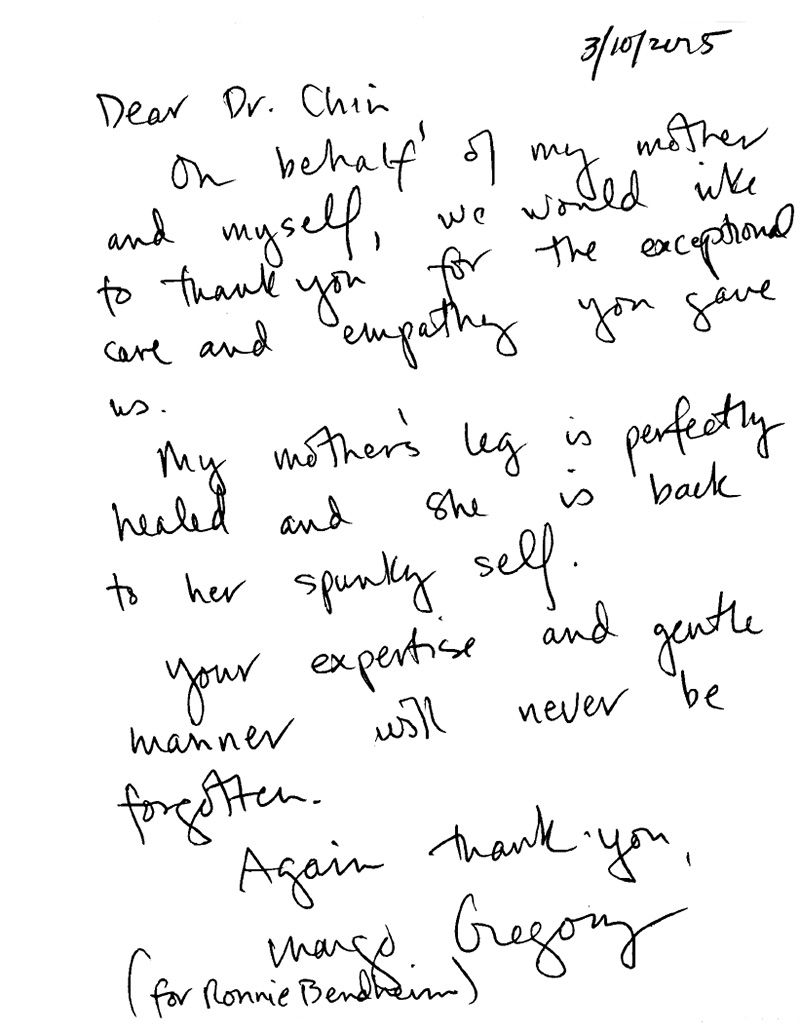 3/10/2015
Dear Dr. Chin
On behalf of my mother
and myself, we would like
to thank you for the exceptional
care and empathy you gave
us.
My mother's leg is perfectly
healed and she is back
to her spunky self.
Your expertise and gentle
manner will never be
forgotten.
Again thank you,
Margo Gregory
(for Ronnie Bendheim)